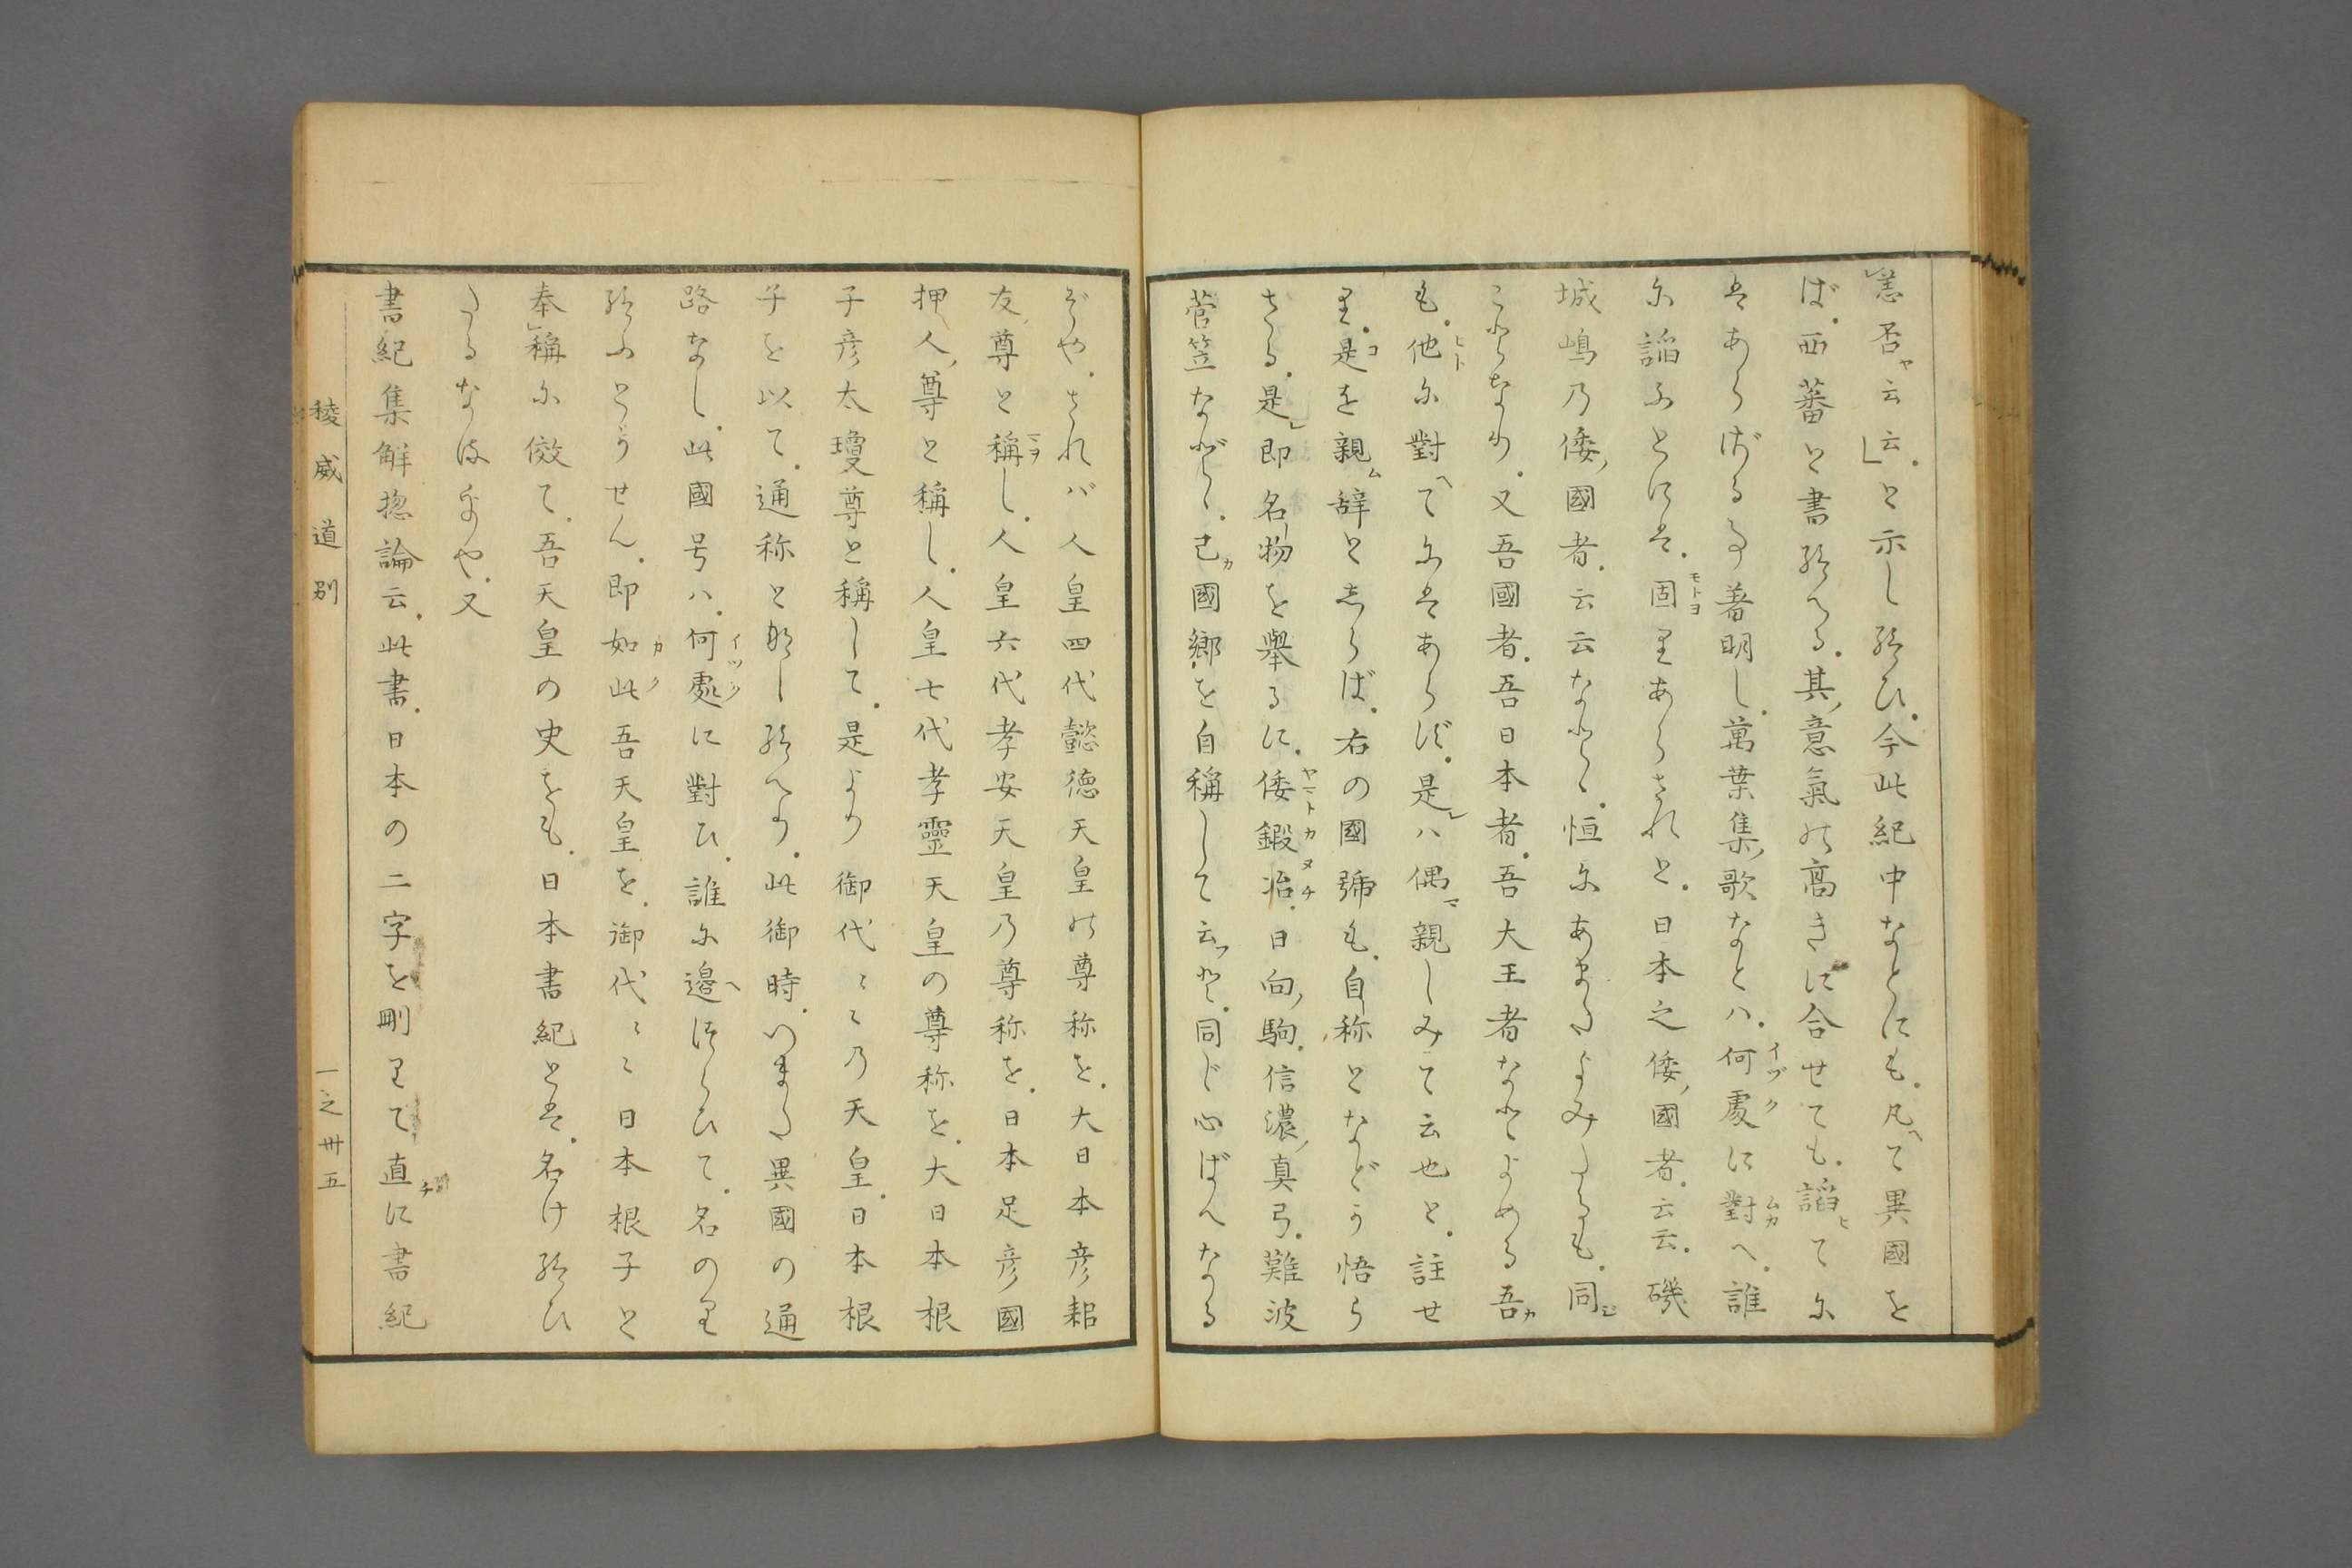 恙否ヤ云云」と示し給ひ今此紀中なとにも凡て異國を
ば西蕃と書給へる其意氣の高きに合せても謟ヒてふ
はあらばる事著明し萬葉集歌なとハ何處に對へ誰
ふ謟ふとにそ固里あらされと日本之倭國者云云磯
城嶋乃倭國者云云なれと恒ふあまたよみたるも同じ
これらなり又吾國者吾日本者吾大王者なとよめる吾カ
も他ふ對へてふはあらず是レハ偶マ親しみて云也と註せ
り是を親ム辞と志らば右の國號も自称となどう悟ら
さる是レ即名物を擧るに倭鍛冶日向駒信濃真弓難波
菅笠なとゝ己カ國郷を自稱して云フと同じ心ばへなる
ぞやされバ人皇四代懿徳天皇の尊称を大日本彦耜
友尊と稱ヲし人皇六代孝安天皇乃尊称を日本足彦國
押人尊と稱し人皇七代孝靈天皇の尊称を大日本根
子彦太瓊尊と稱して是より御代ゝゝ乃天皇日本根
子を以て通称と為し給へり此御時いまた異國の通
路なし此國号ハ何處に對ひ誰ふ邊へ謟らひて名のり
給ふとうせん即如此吾天皇を御代ゝゝ日本根子と
奉稱ふ傚て吾天皇の史をも日本書紀とは名け給ひ
たるなるをや又
書紀集解惣論云此書日本の二字を刪りて直チに書紀
稜威道別
一之卅五